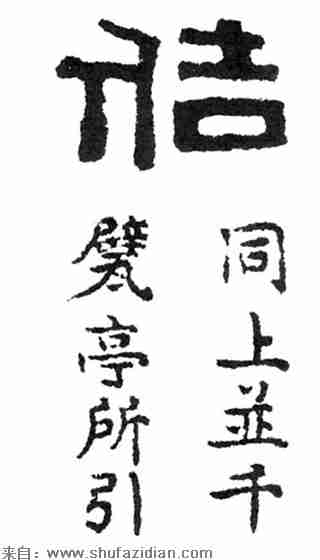 同上並千
甓亭所引
来自：www.shufazidian.com